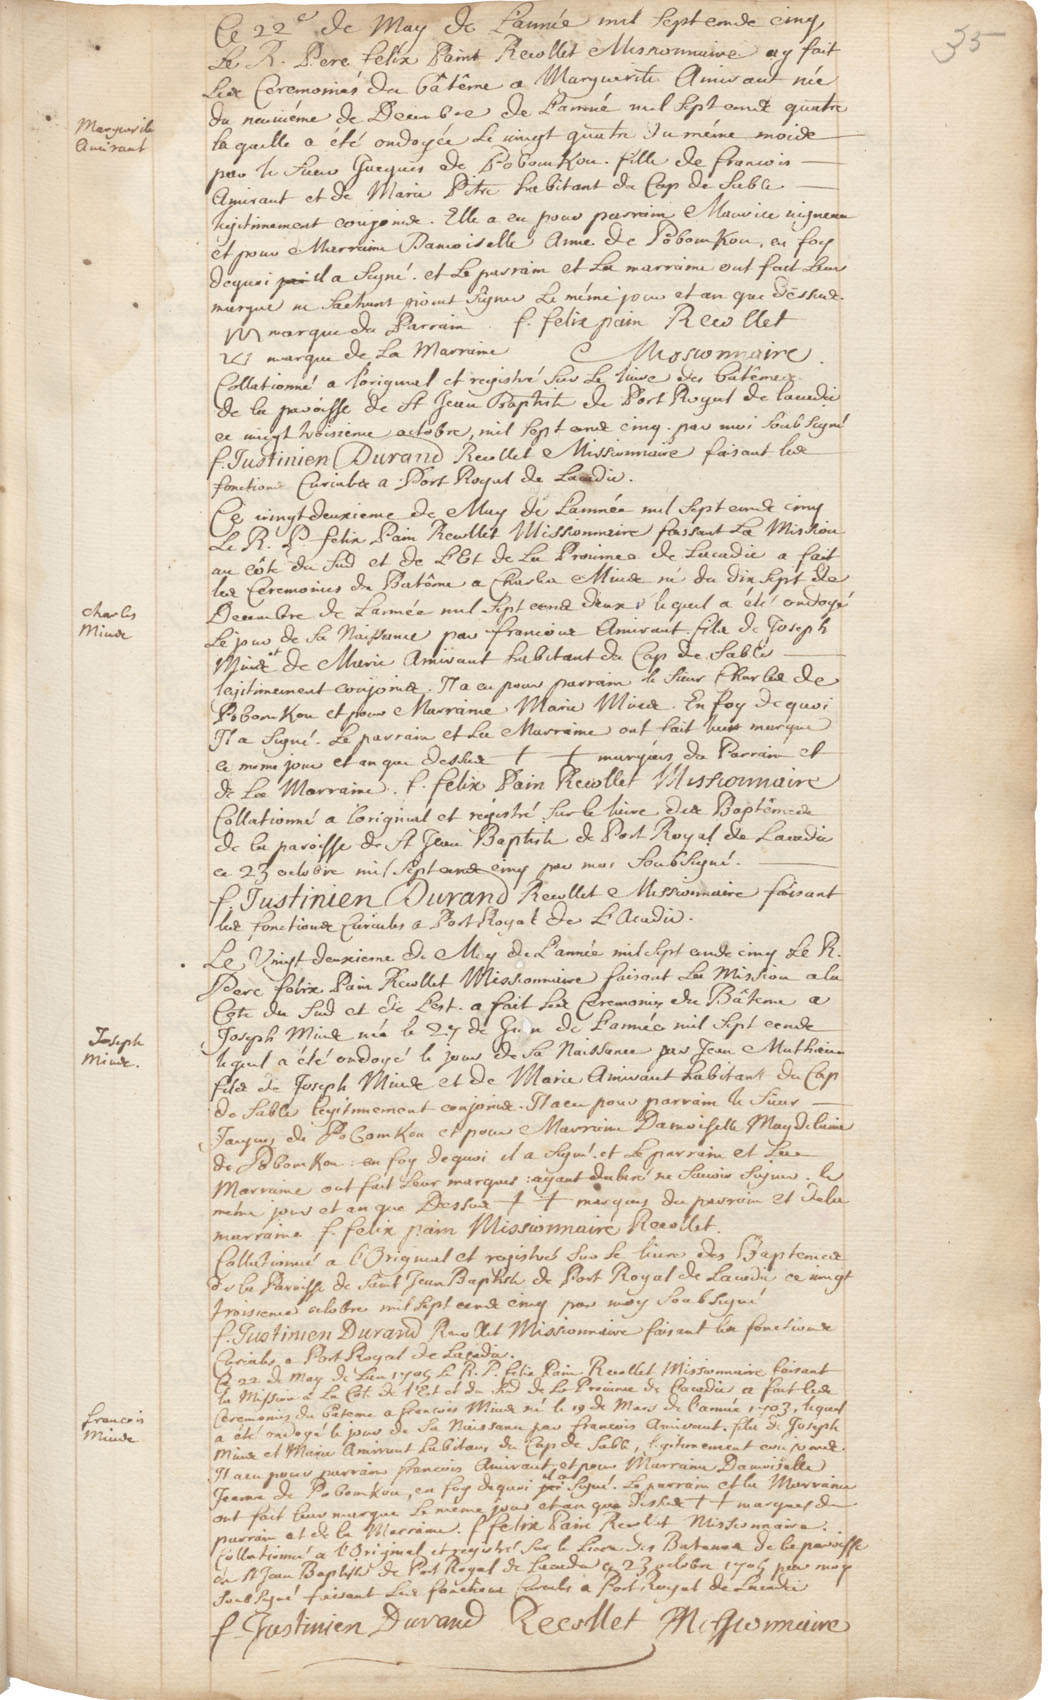 35
Ce 22e de May de L'année mil sept cends cinq
Le R. Pere felix Paint Recollet Missionnaire ay fait
Les Ceremonies du bâtême a Marguerite Amirant née
du neuviéme de Decembre de L'année mil sept cends quatre
Marguerite
Amirant
laquelle a été ondoyée Le vingt quatre du méme mois
par le Sieur Jacques de Pobomkou. fille de francois
Amirant et de Marie Pitre habitant du Cap de Sable
legitimement conjoinds. Elle a eu pour parrain Maurice vigneau
et pour Marraine Damoiselle Anne de Pobomkou, en foy
dequoi il a Signé. et Le parrain et La marraine ont fait Leur
marque ne Sachant point Signer Le méme jour et an que dessus.
marque du Parrain f. felix pain Recollet
marque de La Marraine Missionnaire.
Collationné a l'original et registré Sur Le livre des bâtémes
de la paroisse de St Jean Baptiste de Port Royal de lacadie
ce vingt troisieme octobre, mil sept cends cinq. par moi Soub Signé
f. Justinien Durand Recollet Missionnaire faisant les
fonctions Curiales a Port Royal de Lacadie.
Ce vingt deuxieme de May de L'année mil sept cends cinq
Le R. P. felix Pain Recollet Missionnaire faisant La Mission
au côté du Sud et de L'Est de La Province de Lacadie a fait
les Ceremonies du Batême a Charles Mius né du dix Sept de
Charles
Mius
Decembre de L'année mil Sept cends deux lequel a été ondoyé
Le jour de Sa Naissance par francois Amirant. fils de Joseph
Mius et de Marie Amirant habitant du Cap de Sable
legitimement conjoinds. Il a eu pour parrain le Sieur Charles de
Pobomkou et pour Marraine Marie Mius. En foy dequoi
Il a Signé. Le parrain et La Marraine ont fait leur marque
ce méme jour et an que dessus + + marques du Parrain et
de La Marraine. f. felix Pain Recollet Missionnaire
Collationné a l'original et régistré Sur le livre des Baptêmes
de la paroisse de St Jean Baptiste de Port Royal de Lacadie
ce 23 octobre mil Sept cends cinq par moi Soub Signé.
f. Justinien Durand Recollet Missionnaire faisant
les fonctions Curiales a Port Royal de L'Acadie.
Le Vingt deuxieme de May de L'année mil Sept cends cinq Le R.
Pere felix Pain Recollet Missionnaire faisant La Mission a la
Cote du Sud et de L'est. a fait Les Ceremonies du Bâteme a
Joseph Mius né le 27 de Juin de L'année mil Sept cends
Joseph
Mius.
lequel a été ondoyé le jour de Sa Naissance par Jean Mathieu
fils de Joseph Mius et de Marie Amirant habitant du Cap
de Sable legitimement conjoinds. Il a eu pour parrain le Sieur
Jacques de Pobomkou et pour Marraine Damoiselle Magdelaine
de Pobomkou: en foy dequoi il a Signé. et Le parrain et La
Marraine ont fait Leur marques: ayant declaré ne Savoir Signer. le
méme jour et an que Dessus + + marques du parrain et de la
marraine f. felix pain Missionnaire Recollet.
Collationné a l'Original et registré Sur Le livre des Baptemes
de la Paroisse de Saint Jean Baptiste de Port Royal de Lacadie ce vingt
troisieme octobre mil Sept cends cinq par moy Soub Signé
f. Justinien Durand Recollet Missionnaire faisant les fonctions
Curiales a Port Royal de Lacadie.
Ce 22 de May de L'an 1705 Le R. P. felix Pain Recollet Missionnaire faisant
La Mission a La Cote de l'Est et du Sud de La Province de Lacadie a fait Les
Ceremonies du bâteme a francois Mius né le 19 de Mars de l'année 1703, lequel
francois
Mius
a été ondoyé le jour de Sa Naissance par francois Amirant. fils de Joseph
Mius et Marie Amirant habitans du Cap de Sable, legitimement conjoinds
Il a eu pour parrain francois Amirant, et pour Marraine Damoiselle
Jeanne de Pobomkou, en foy dequoi il a Signé. Le parrain et la Marraine
ont fait leur marque Le méme jour et an que dessus + + marques du
parrain et de la Marraine. f felix Pain Recollet Missionnaire.
Collationné a l'Original et registré Sur le Livre des Batemes de la paroisse
de St Jean Baptiste de Port Royal de Lacadie ce 23 octobre 1705 par moy
Soub Signé faisant Les fonctions Curiales a Port Royal de Lacadie
f. Justinien Durand Recollet Missionnaire